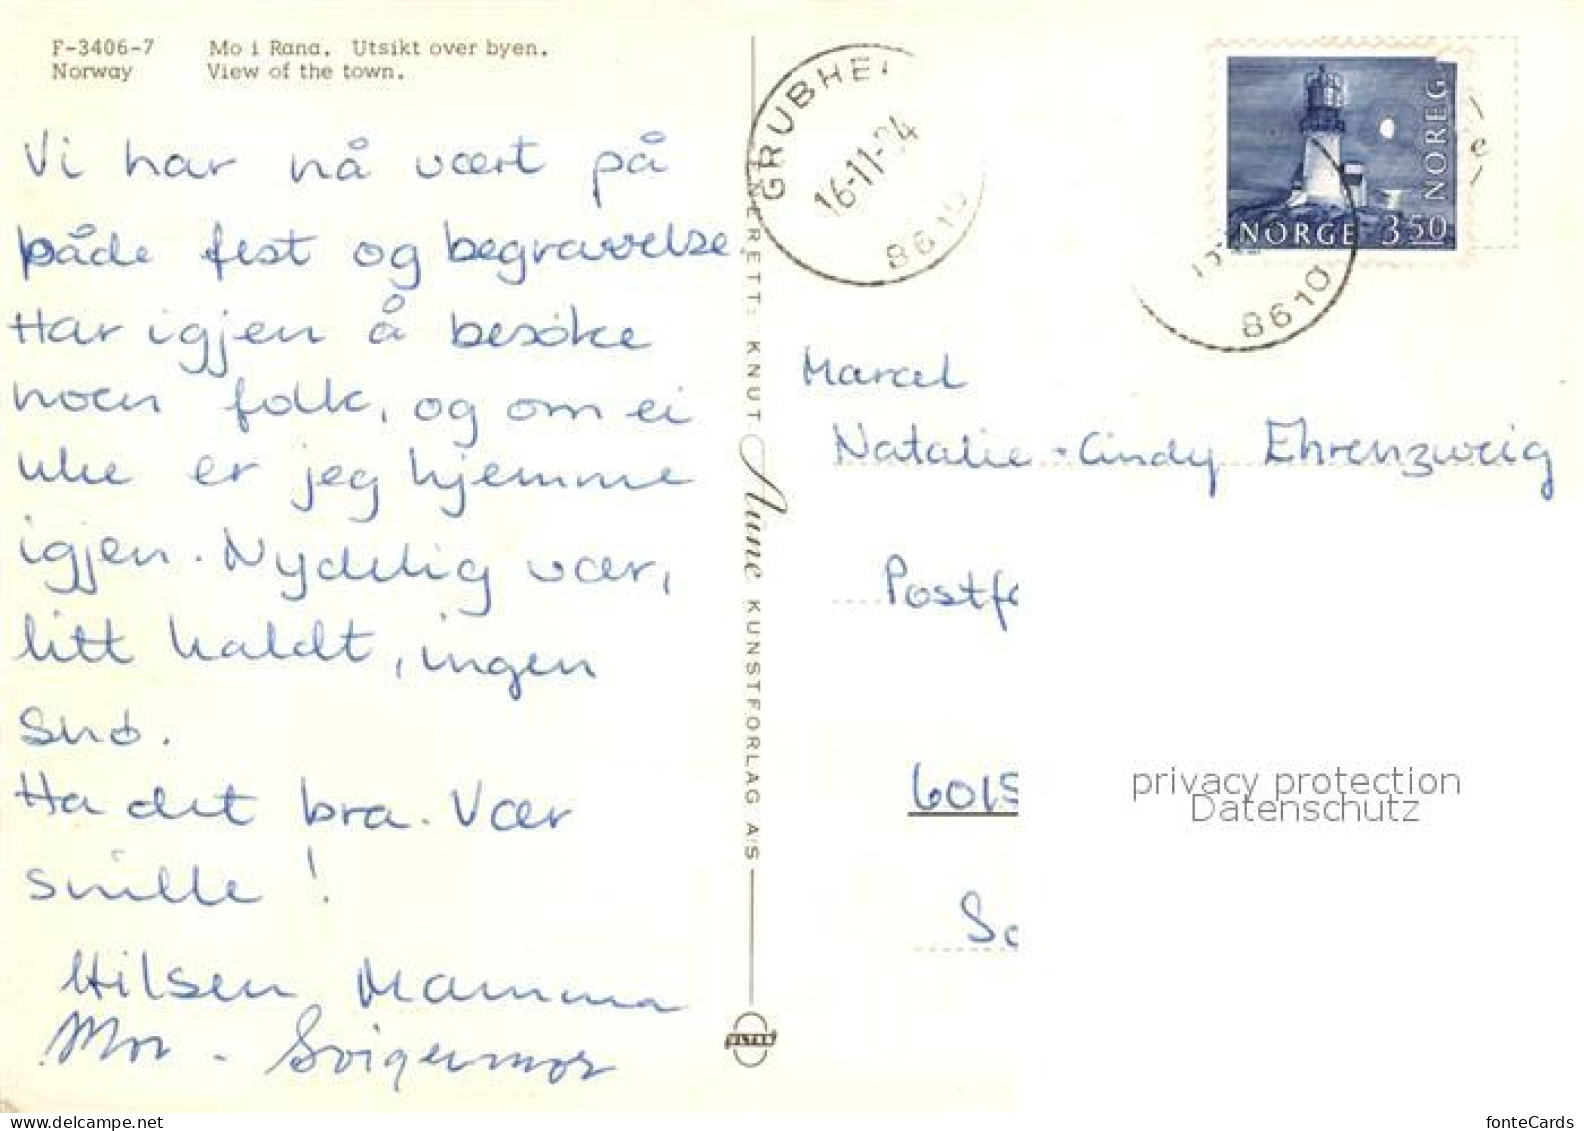 F-3406-7 Mo i Rana. Utsikt over byen.
Norway View of the town.
Vi har nå vært på
både fest og begravelse.
Har igjen å besøke
noen folk, og om ei
uke er jeg hjemme
igjen. Nydelig vær,
litt kaldt, ingen
snø.
Ha det bra. Vær
snille!
Hilsen Mamma
Mor - Svigermor
ENERETT: KNUT Aune KUNSTFORLAG A/S
GRUBHEI
16-11-
8610
NORGE 350
NOREG
8610
Marcel
Natalie - Cindy Ehrenzweig
Postf
6015
privacy protection
Datenschutz
fonteCards